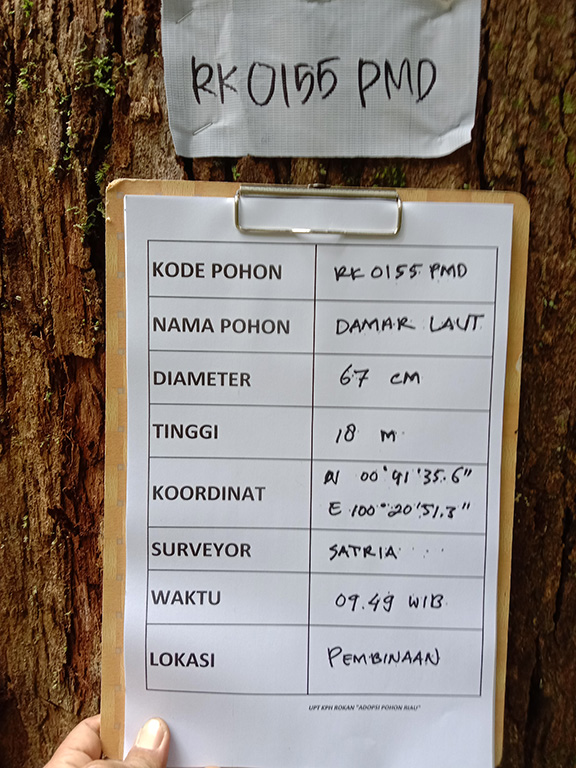 RK 0155 PMD
KODE POHON RK 0155 PMD
NAMA POHON DAMAR LAUT
DIAMETER 67 CM
TINGGI 18 M
KOORDINAT N 00°41'35.6"
E 100°20'51.3"
SURVEYOR SATRIA
WAKTU 09.49 WIB
LOKASI PEMBINAAN
UPT KPH ROKAN "ADOPSI POHON RIAU"